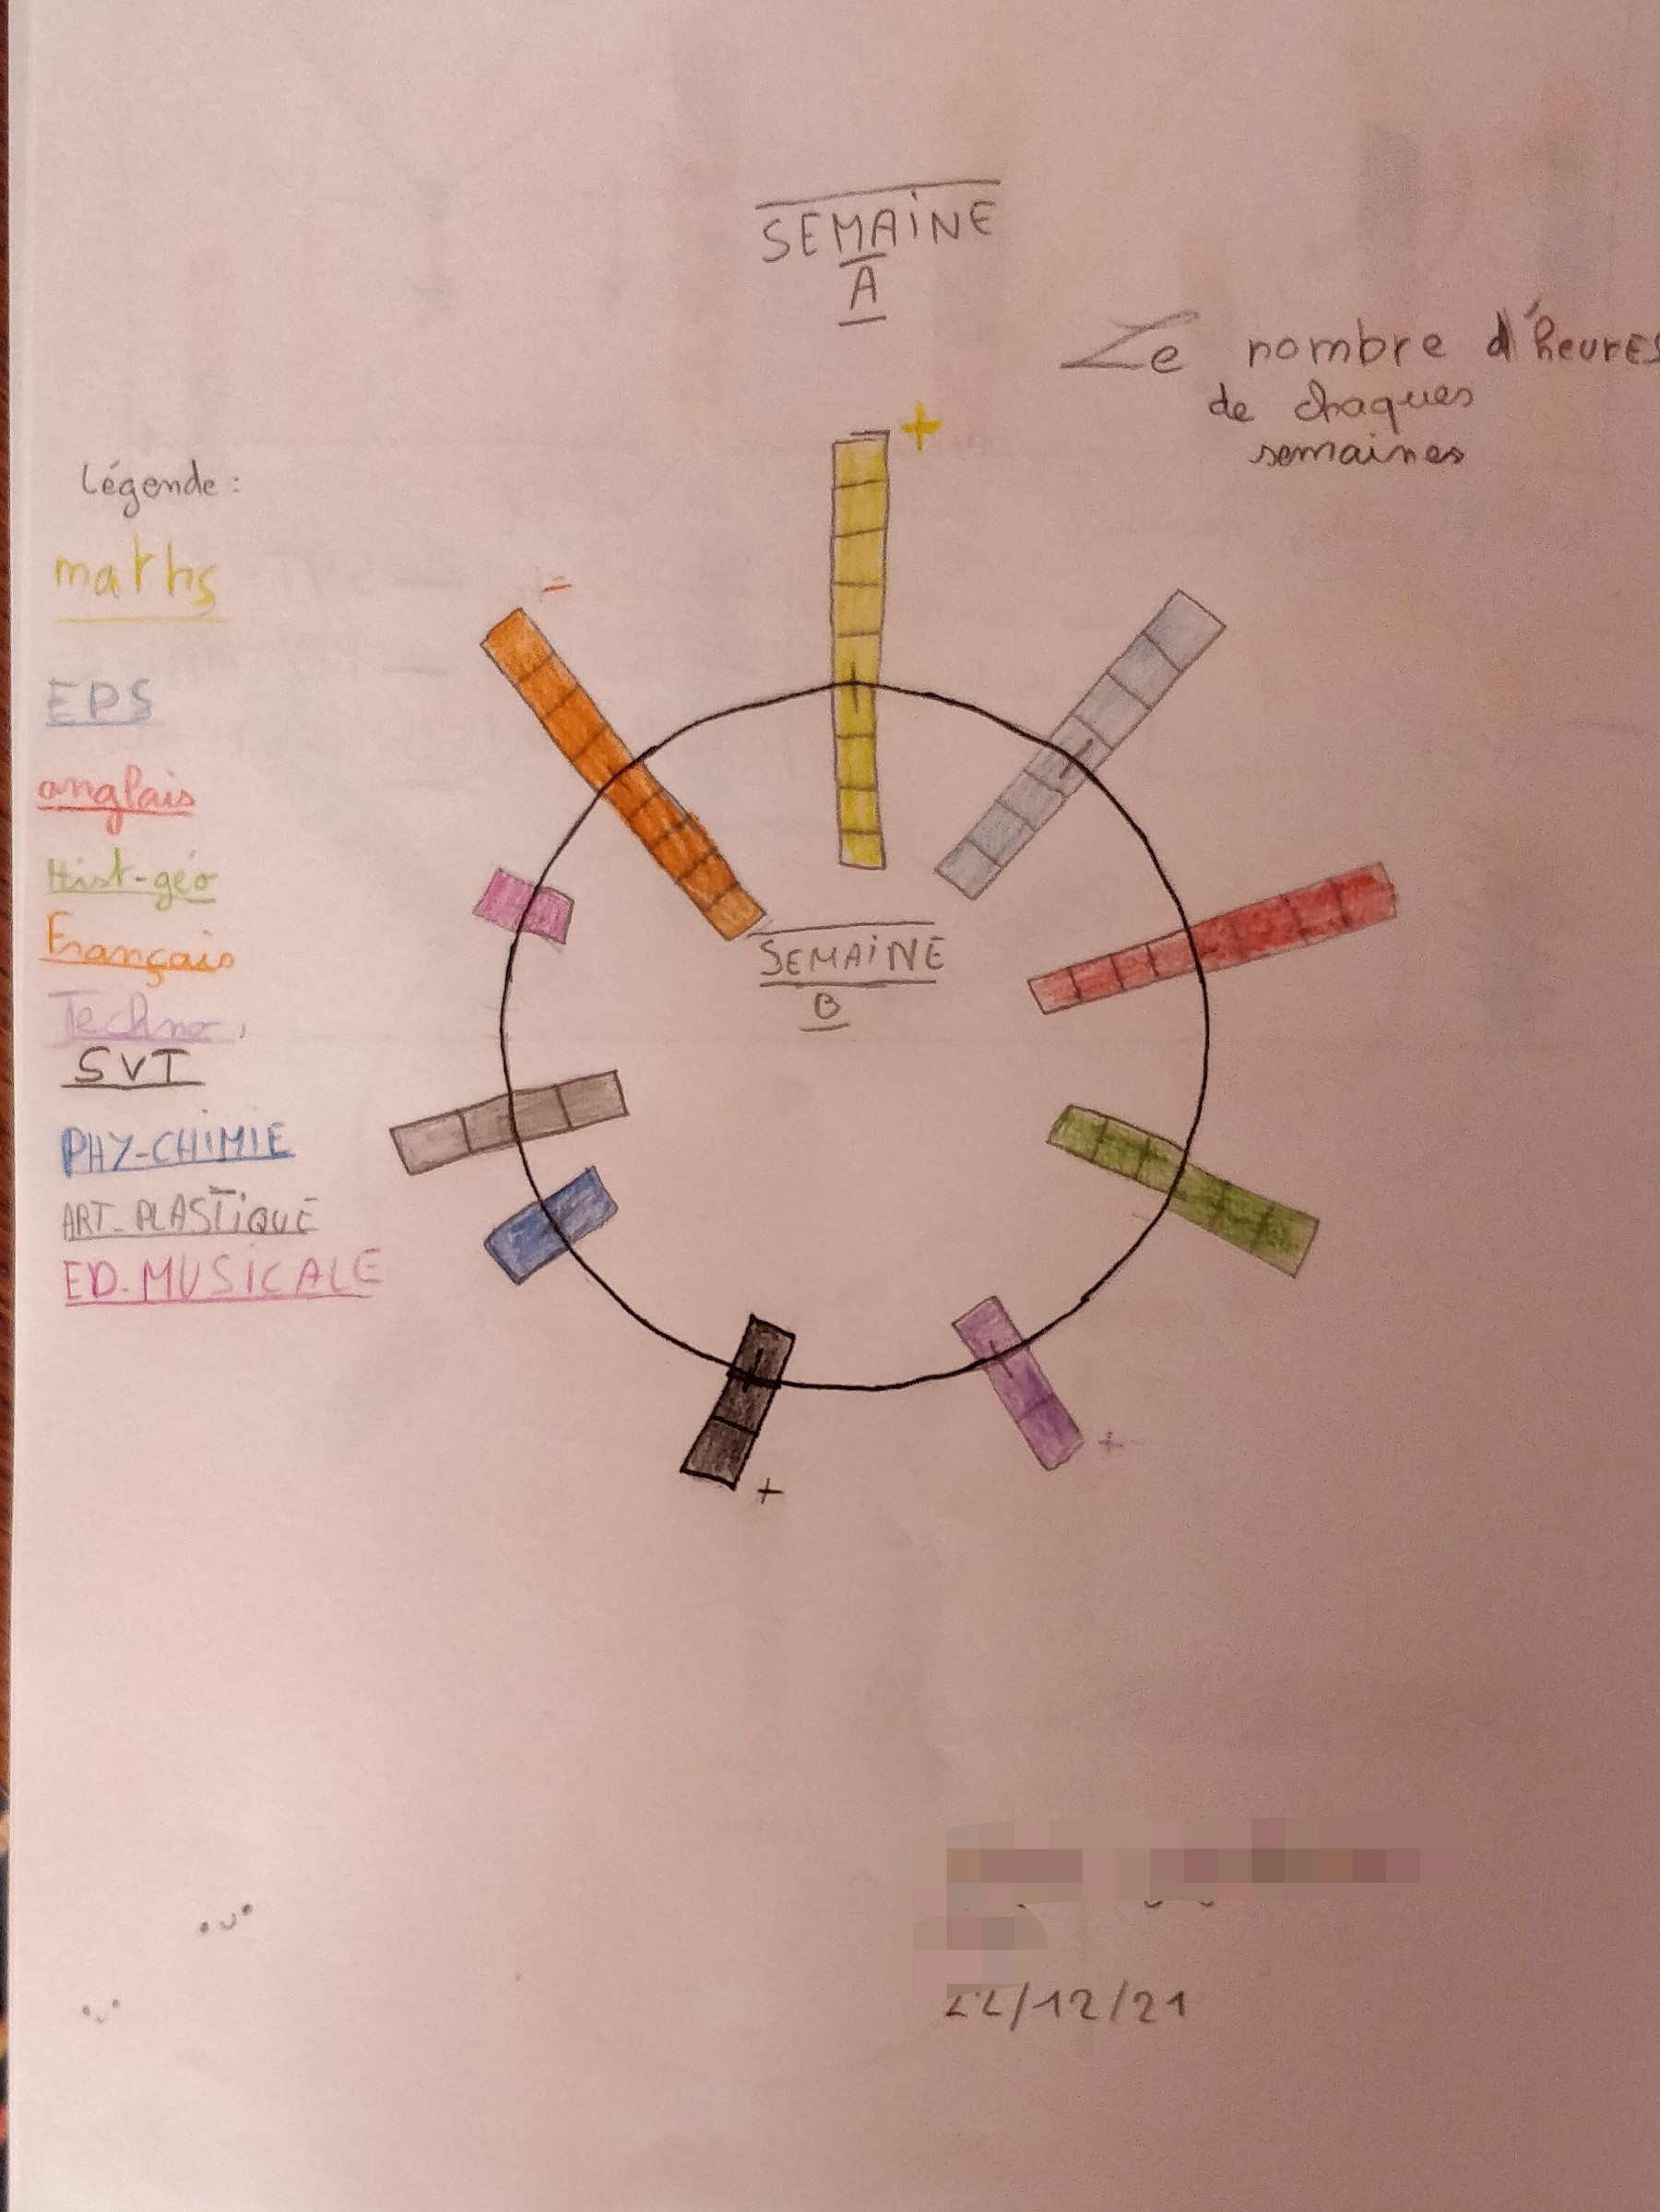 SEMAINE
A
Le nombre d'heures
de chaques
semaines
Légende :
maths
EPS
anglais
Hist-géo
Français
Techno.
SVT
PHY-CHIMIE
ART-PLASTIQUE
ED.MUSICALE
+
-
SEMAINE
B
+
+
22/12/21